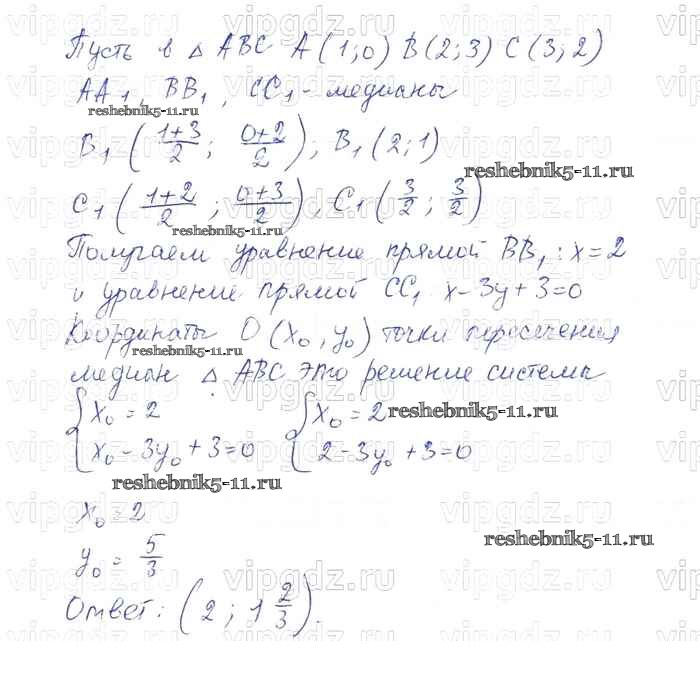 Пусть в △ ABC A (1; 0) B (2; 3) C (3; 2)
AA₁, BB₁, CC₁ - медианы
reshebnik5-11.ru
B₁ ( (1+3)/2 ; (0+2)/2 ); B₁ (2; 1)
reshebnik5-11.ru
C₁ ( (1+2)/2 ; (0+3)/2 ), C₁ ( 3/2 ; 3/2 )
reshebnik5-11.ru
Получаем уравнение прямой BB₁ : x = 2
и уравнение прямой CC₁ x - 3y + 3 = 0
Координаты O (x₀, y₀) точки пересечения
reshebnik5-11.ru
медиан △ ABC это решение системы
{ x₀ = 2 { x₀ = 2
reshebnik5-11.ru
x₀ - 3y₀ + 3 = 0 2 - 3y₀ + 3 = 0
reshebnik5-11.ru
x₀ = 2
reshebnik5-11.ru
y₀ = 5/3
Ответ: (2 ; 1 2/3).
vipgdz.ru